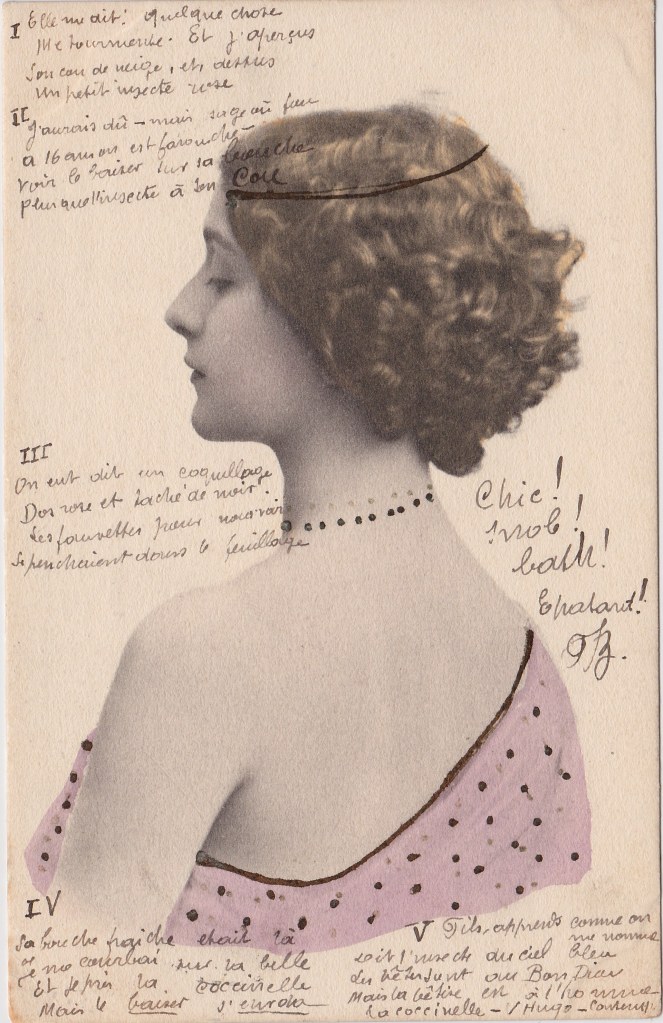 I Elle me dit: Quelque chose
Me tourmente. Et j'aperçus
Son cou de neige, et, dessus
Un petit insecte rose
II
J'aurais dû – mais sage ou fou
a 16 ans on est farouche –
Voir le baiser sur sa bouche
Plus que l'insecte à son Cou
III
On eut dit un coquillage
Dos rose et taché de noir.
Les fauvettes pour nous voir
Se penchaient dans le feuillage
Chic!
Snob!
bath!
Epatant!
IV
Sa bouche fraîche etait là
Je me courbai sur la belle
Et je pris la coccinelle
Mais le baiser s'envola
V Fils, apprends comme on
me nomme
Dit l'insecte du ciel bleu
Les bêtes sont au Bon Dieu
Mais la bêtise est à l'homme –
La coccinelle – V Hugo –